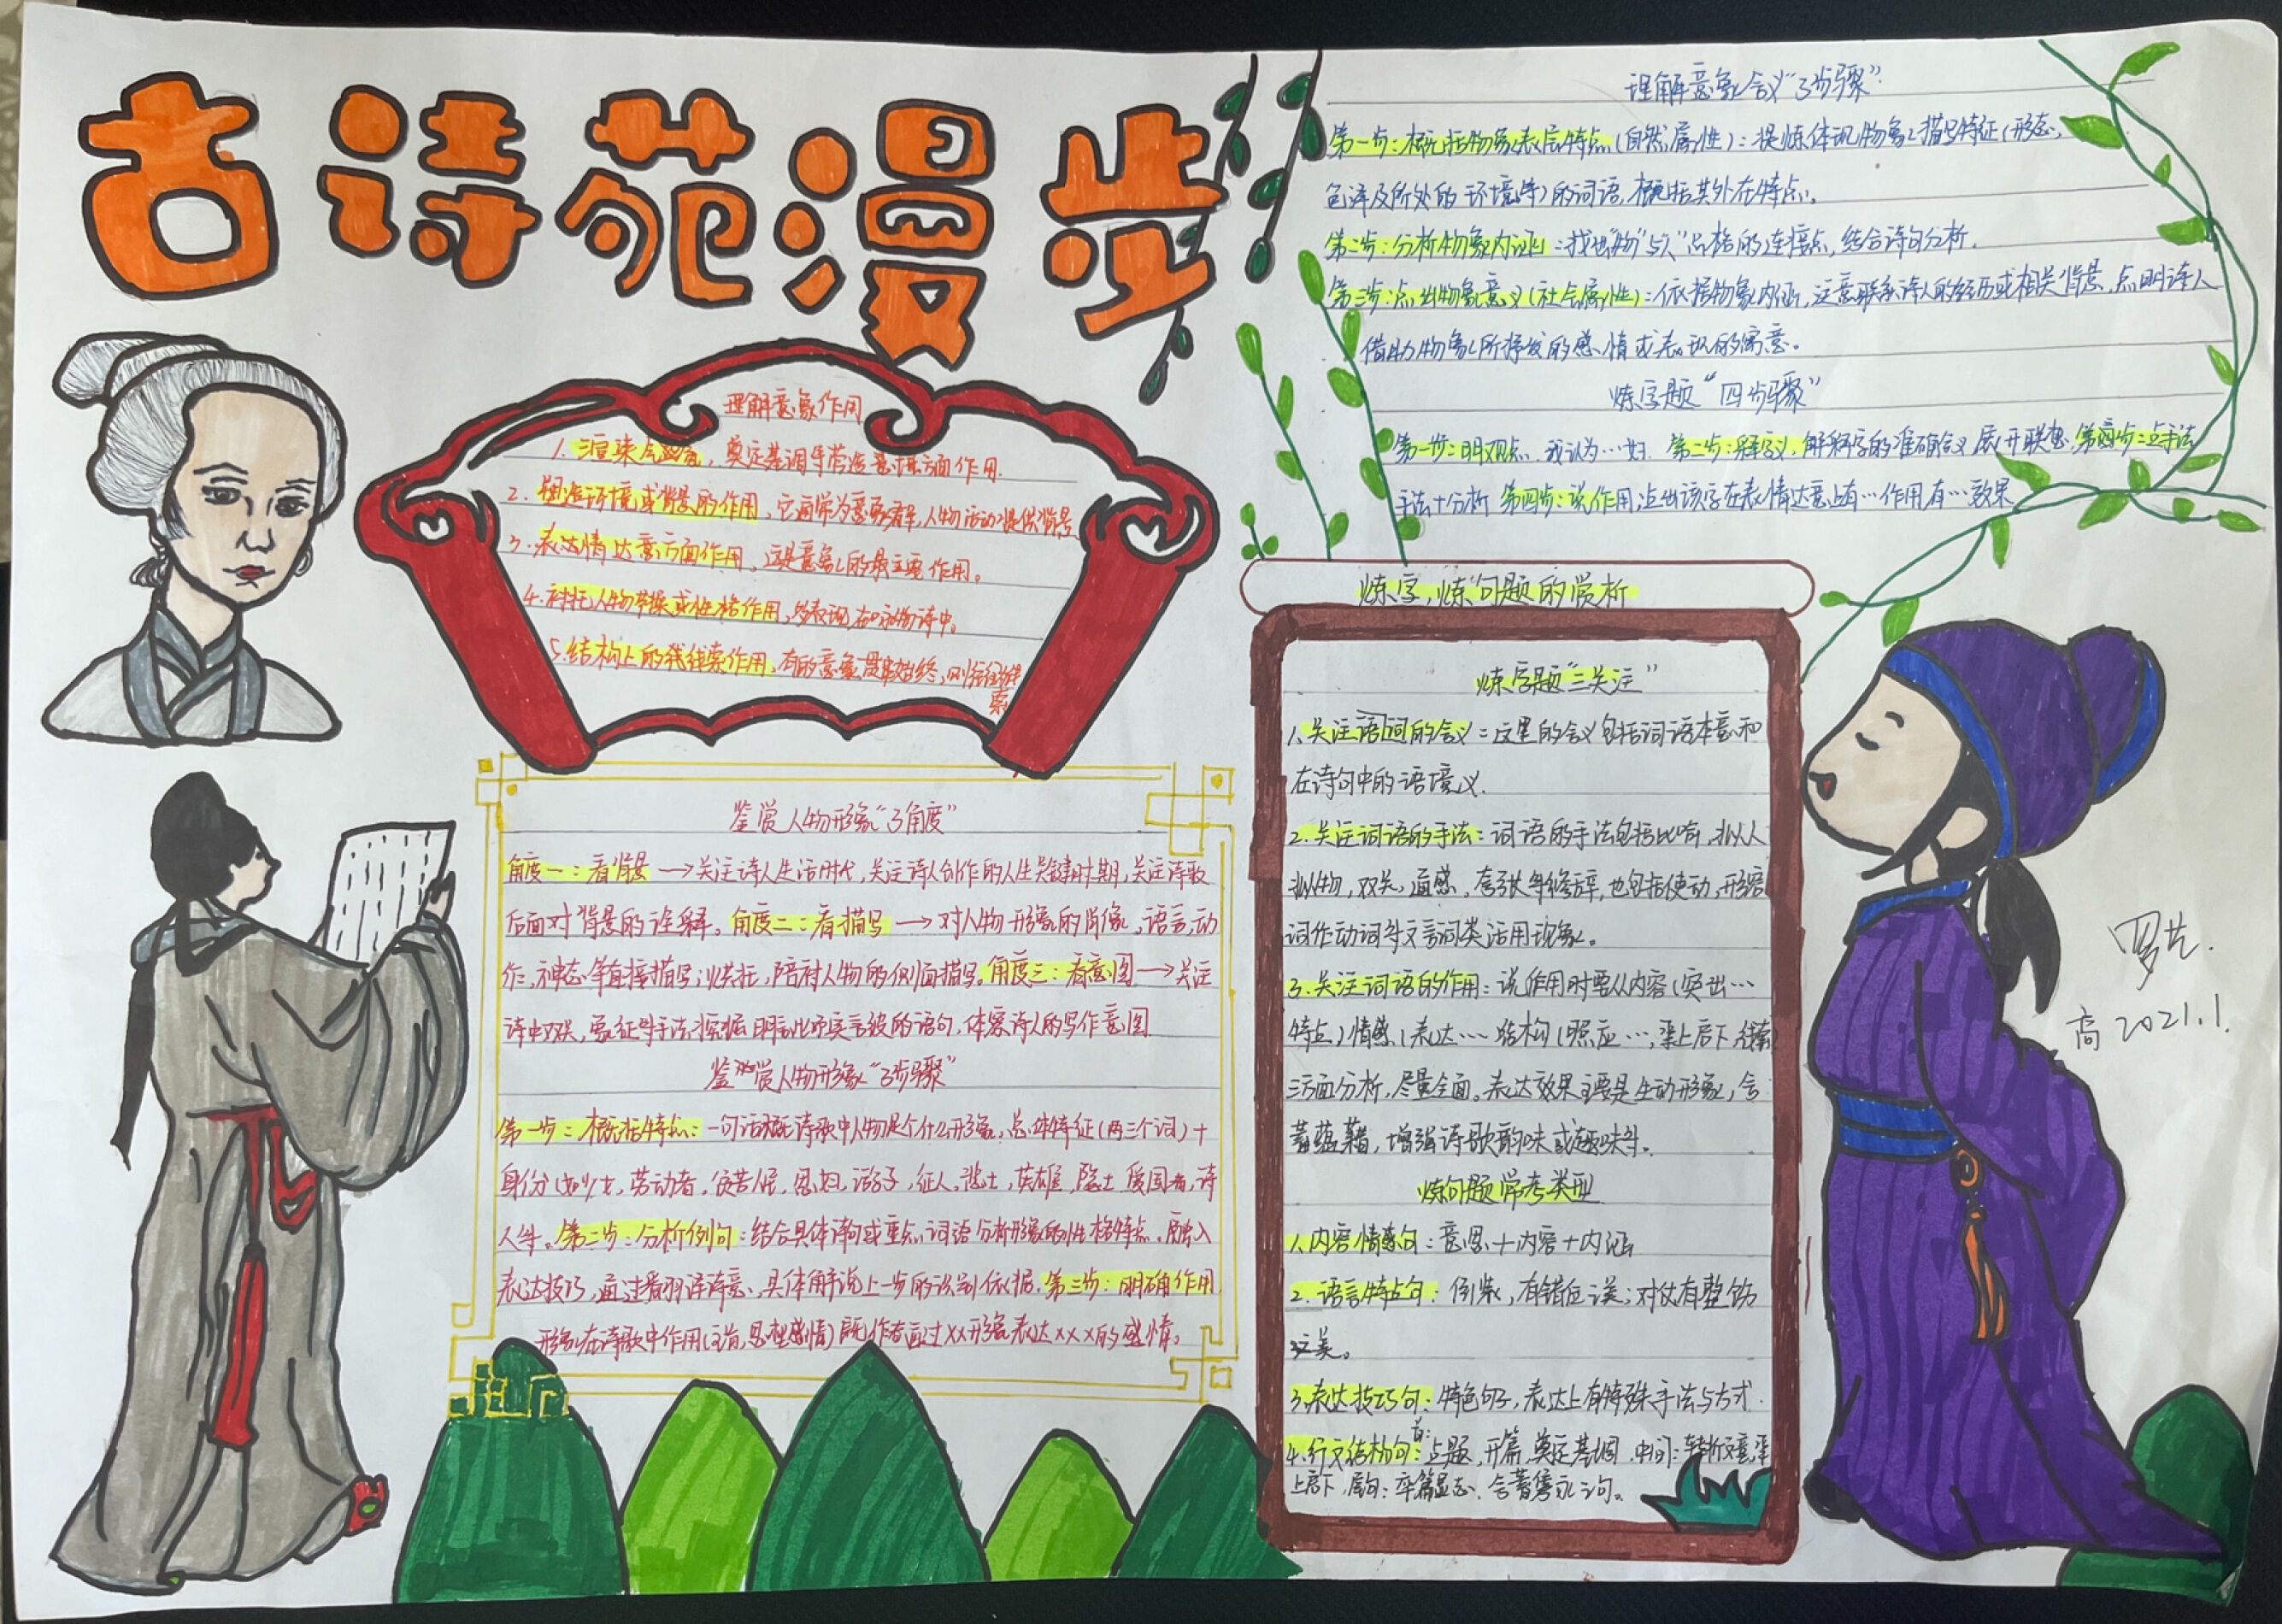 古诗苑漫步
理解意象作用
1.渲染气氛,奠定基调等营造意境方面作用.
2.塑造环境或背景的作用,它通常为意象群,人物活动提供背景
3.表达情达意方面作用,这是意象的最主要作用。
4.衬托人物节操或性格作用,多表现在咏物诗中。
5.结构上的线索作用,有的意象贯串始终,则往往线
索
鉴赏人物形象“3角度”
角度一:看背景→关注诗人生活时代,关注诗人创作的人生关键时期,关注诗歌
后面对背景的诠释。角度二:看描写→对人物形象的肖像,语言,动
作,神态等直接描写;烘托,陪衬人物的侧面描写。角度三:看意图→关注
诗中双关,象征等手法,挖掘明言此而实言彼的语句,体察诗人的写作意图
鉴赏人物形象“3步骤”
第一步:概括特点:一句话概括诗歌中人物是个什么形象,总体特征(两三个词)+
身份(如少女,劳动者,思妇,游子,征人,英雄,隐士,爱国者,诗
人等。第二步:分析例句:结合具体诗句或重点词语分析形象的性格特点,融入
表达技巧,通过翻译诗意,具体解说上一步的识别依据.第三步:明确作用
形象在诗歌中作用(主旨,思想感情)既作者通过xx形象表达xxx的感情。
理解意象含义“3步骤”
第一步:概括物象表层特点(自然属性):提炼体现物象描写特征(形态,
色泽及所处的环境等)的词语,概括其外在特点。
第二步:分析物象内涵:找出“物”与“人”品格的连接点,结合诗句分析.
第三步:点出物象意义(社会属性):依据物象内涵,注意联系诗人的经历或相关背景,点明诗人
借助物象所抒发的感情或表现的寓意。
炼字题“四步骤”
第一步:明观点,我认为…好.第二步:释字义,解释字的准确含义展开联想.第四步:点手法
手法+分析 第四步:说作用,点出该字在表情达意上有…作用有…效果
炼字,炼句题的赏析
炼字题“三关注”
1.关注语词的含义:这里的含义包括词语本意和
在诗句中的语境义.
2.关注词语的手法:词语的手法包括比喻,拟人
拟物,双关,通感,夸张等修辞,也包括使动,形容
词作动词等文言词类活用现象。
3.关注词语的作用:说作用时要从内容(突出…
特点)情感(表达…结构(照应…,承上启下,线索
三方面分析,尽量全面。表达效果主要是生动形象,含
蓄蕴藉,增强诗歌韵味或趣味等。
炼句题常考类型
1.内容情感句:意思+内容+内涵
2.语言特点句:倒装,有错位之美;对仗有整饬
之美。
3.表达技巧句:特色句子,表达上有特殊手法与方式.
首:
4.行文结构句:点题,开篇,奠定基调.中间:转折文意,承
上启下,尾句:卒篇显志,含蓄隽永之句。
高 2021.1.